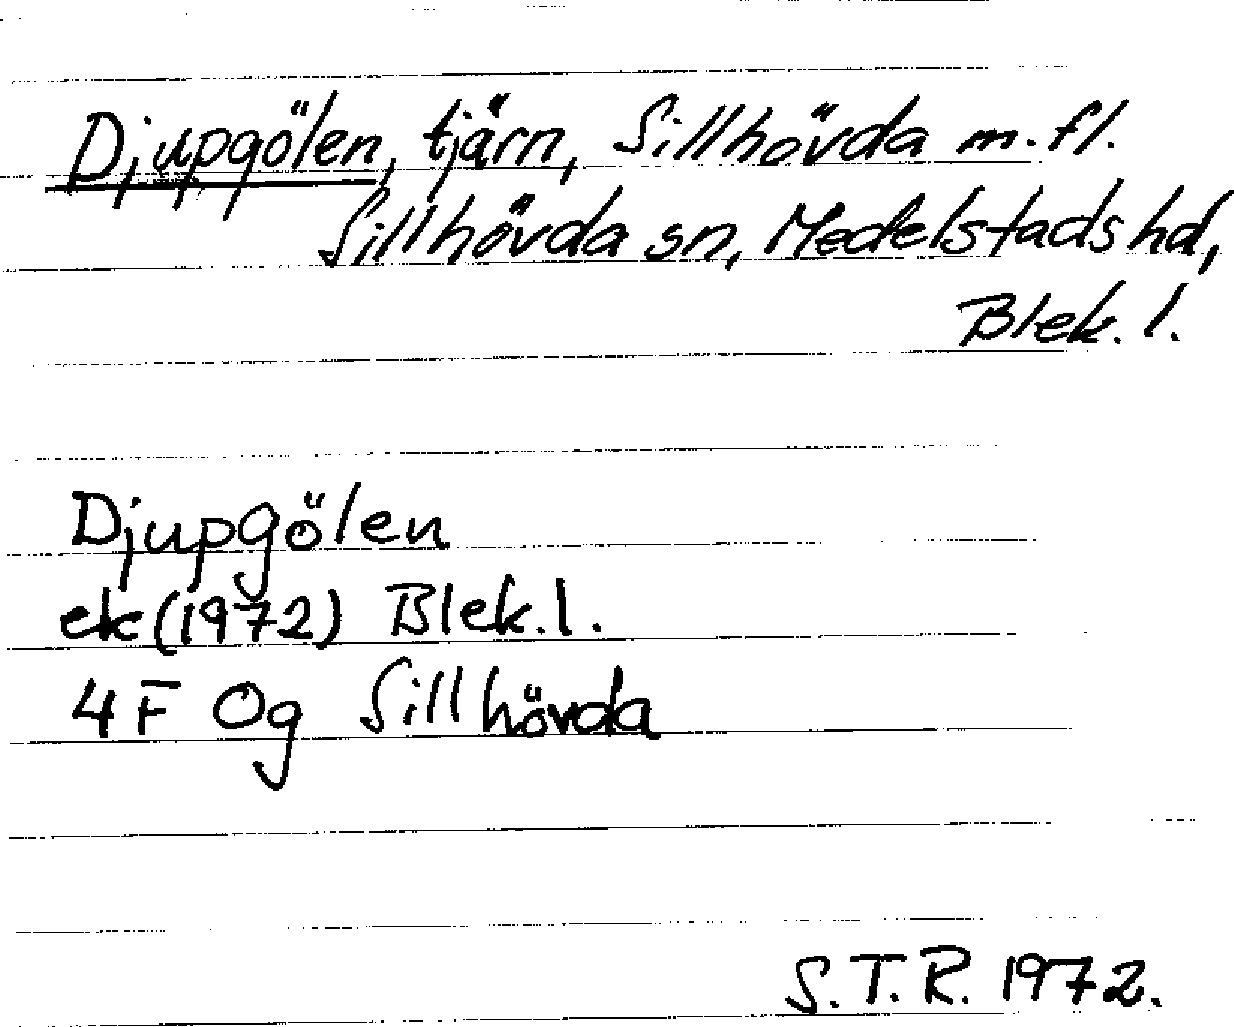 Djupgölen, tjärn, Sillhövda m.fl.
Sillhövda sn, Medelstads hd,
Blek. l.
Djupgölen
ek (1972) Blek. l.
4F 0g Sillhövda
S.T.R. 1972.